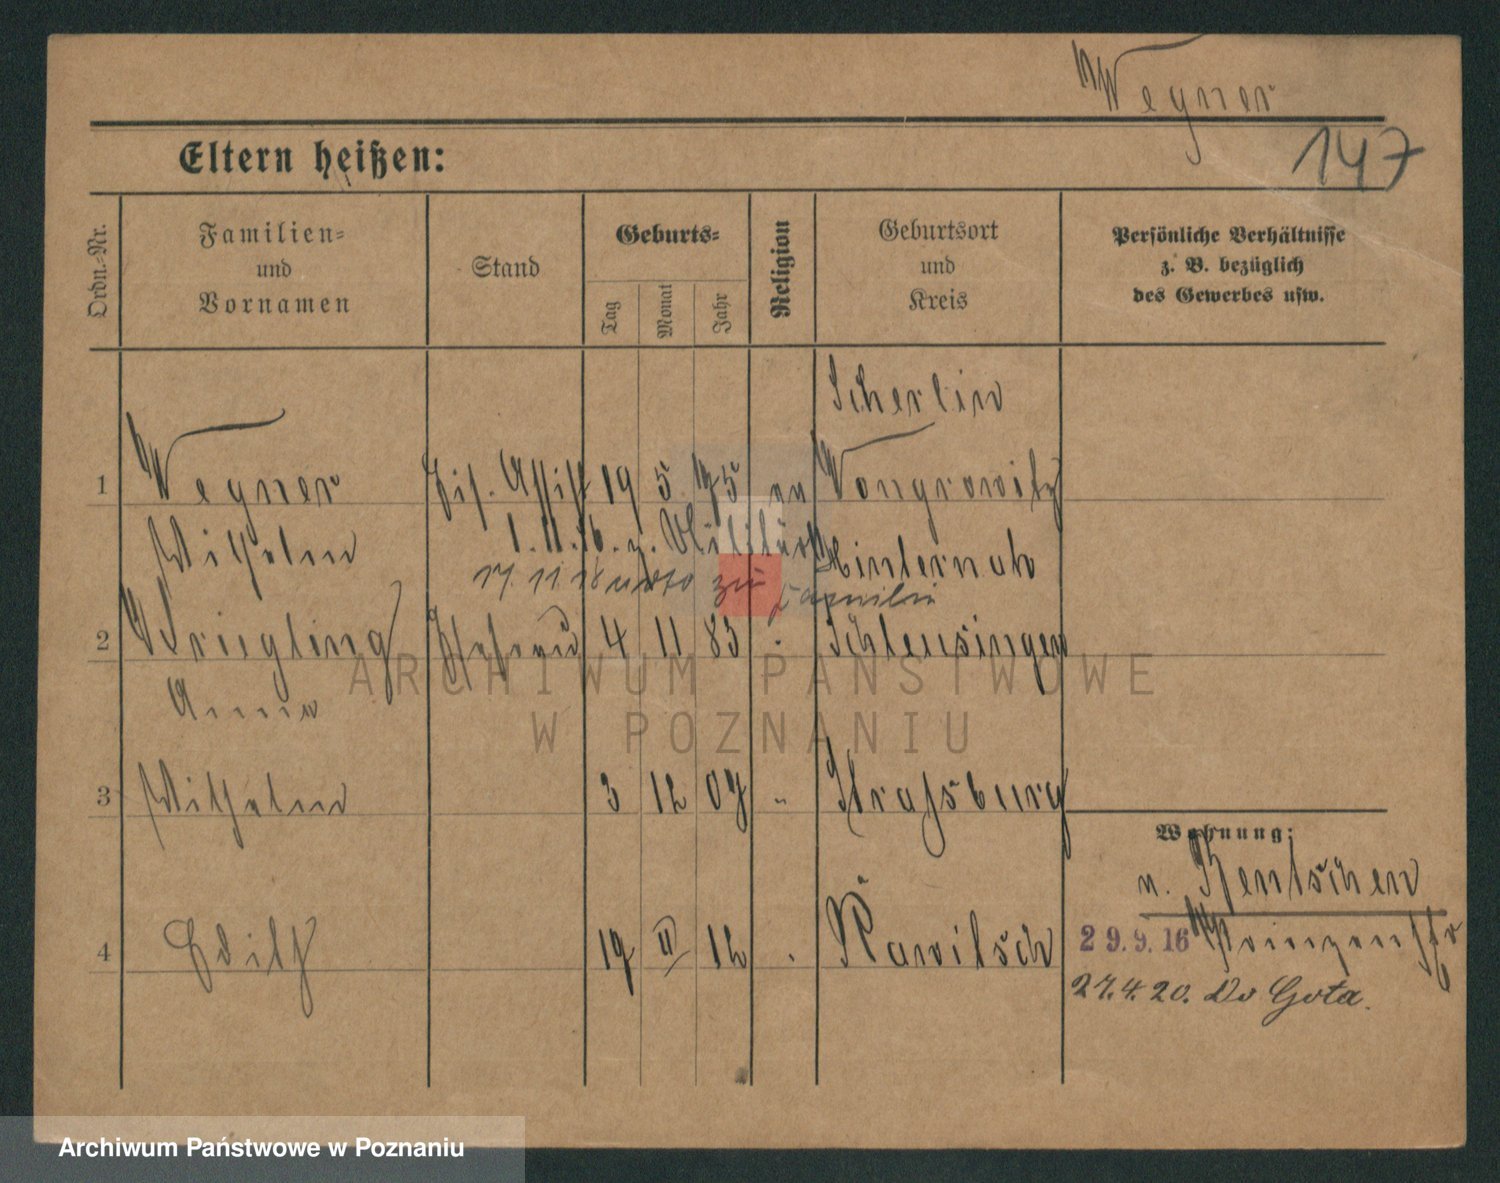 Wegner
147
Eltern heißen:
Ordn.-Nr.
Familien-
und
Vornamen
Stand
Geburts-
Tag
Monat
Jahr
Religion
Geburtsort
und
Kreis
Persönliche Verhältnisse
z. B. bezüglich
des Gewerbes usw.
Scherlin
1 Wegner 19 5 75 Wongrowitz
Wilhelm 1. 11. 16. z. Militär Hinternah
17. 11 18 zu Familie
2 Kriegling Ehefrau 4 11 83 Schleusingen
Anna
3 Wilhelm 3 12 07 " Straßburg
Wohnung:
n. Bentschen
4 Edith 19 II 12 Rawitsch
29. 9. 16 Prinzenstr
27. 4. 20. Do Gota.
ARCHIWUM PAŃSTWOWE
W POZNANIU
Archiwum Państwowe w Poznaniu